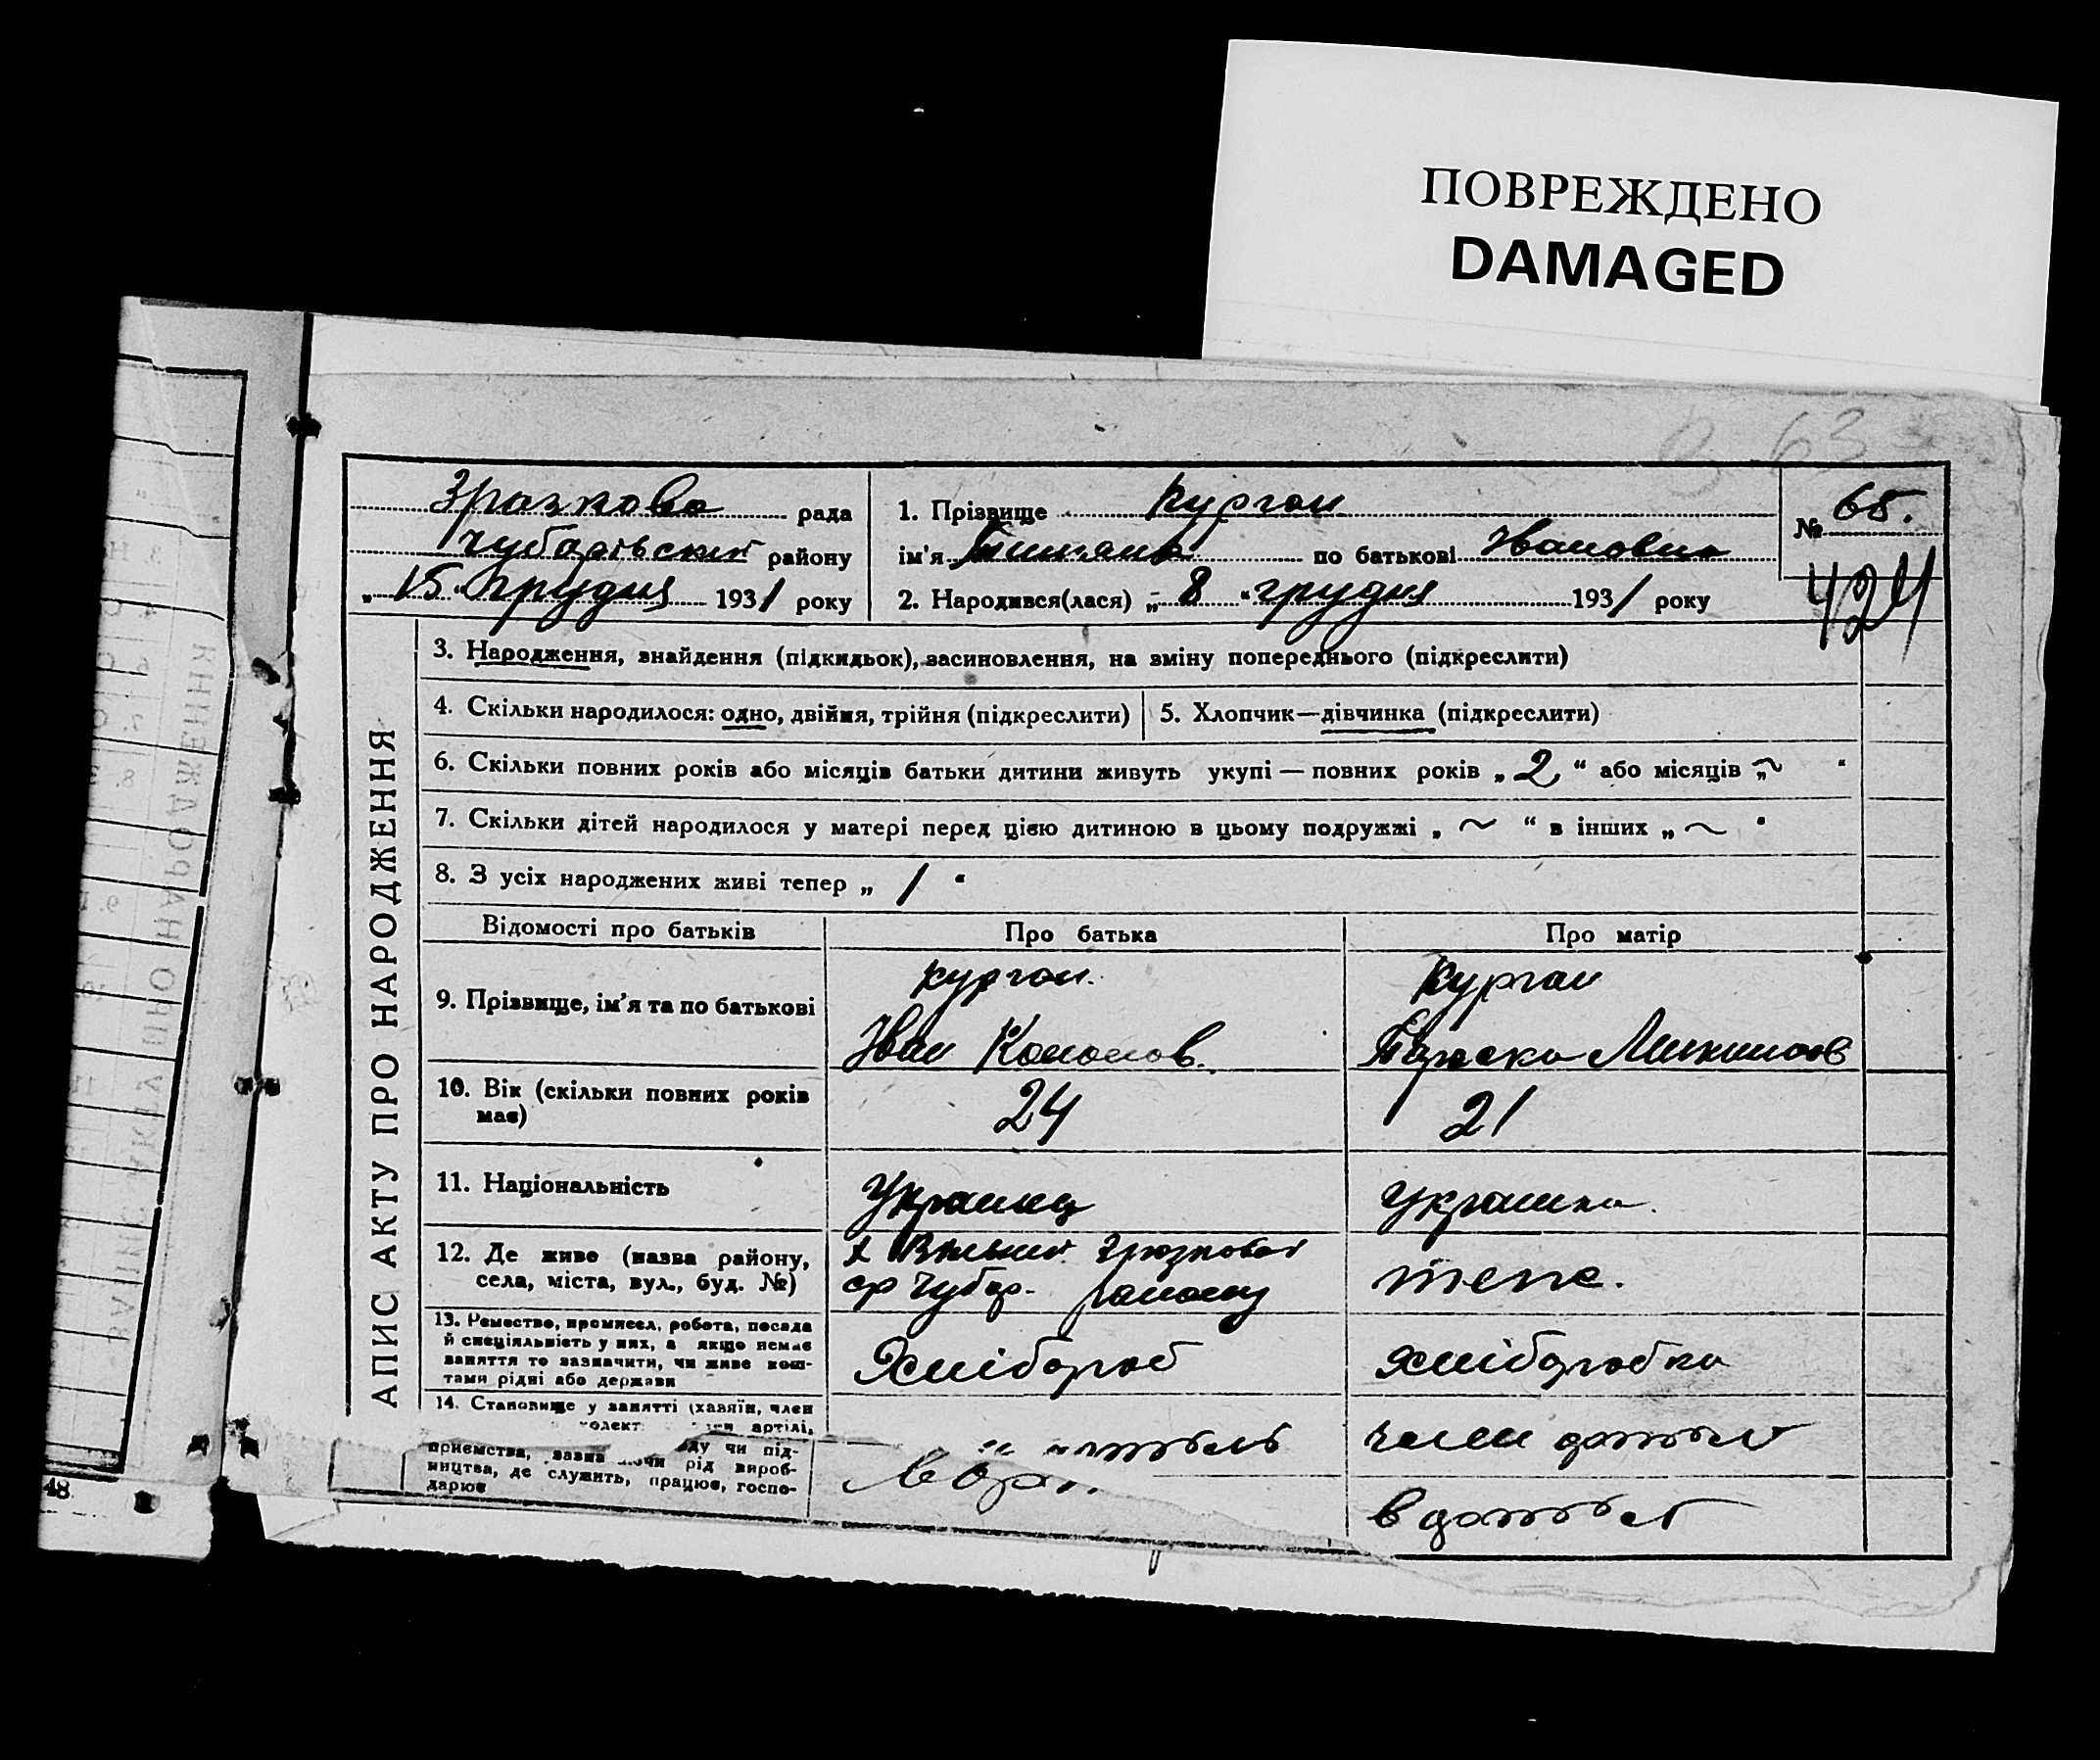 ПОВРЕЖДЕНО
DAMAGED
63
Зразкова рада
Чубарівський району
„15“ грудня 1931 року
1. Прізвище Курган
ім'я по батькові Івановна
2. Народився(лася) „8“ грудня 1931 року
№ 65.
424
АПИС АКТУ ПРО НАРОДЖЕННЯ
3. Народження, знайдення (підкидьок), засиновлення, на зміну попереднього (підкреслити)
4. Скільки народилося: одно, двійня, трійня (підкреслити)
5. Хлопчик—дівчинка (підкреслити)
6. Скільки повних років або місяців батьки дитини живуть укупі — повних років „2“ або місяців „~“
7. Скільки дітей народилося у матері перед цією дитиною в цьому подружжі „~“ в інших „~“
8. З усіх народжених живі тепер „1“
Відомості про батьків
Про батька
Про матір
9. Прізвище, ім'я та по батькові
Курган.
Іван Кононов.
Курган
10. Вік (скільки повних років має)
24
21
11. Національність
Українец
Українка.
12. Де живе (назва району,
села, міста, вул., буд. №)
ср Чубар. району
теж.
13. Ремество, промисел, робота, посада
й спеціяльність у них, а якщо немає
заняття то зазначити, чи живе кош-
тами рідні або держави
Хлібороб
хліборобка
14. Становище у занятті (хазяїн, член
артілі,
приємства, чи під-
рід вироб-
ництва, де служить, працює, госпо-
дарює
член
в
48